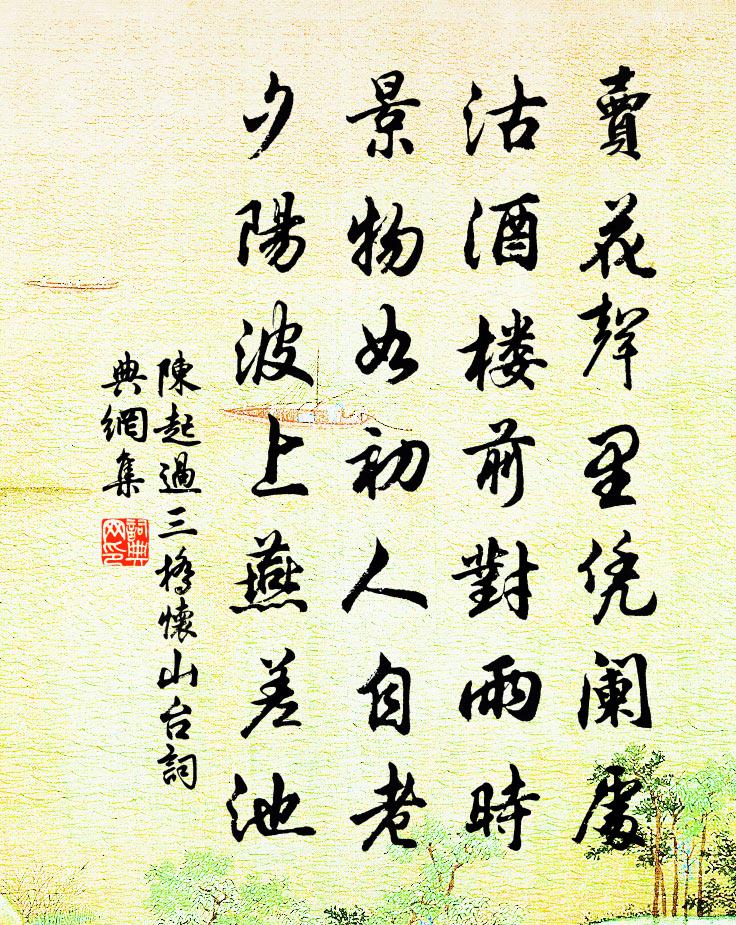 賣花聲里凭阑處
沽酒楼前對雨時
景物如初人自老
夕陽波上燕差池
陳起過三橋懷山台詞
典網集
詞典
网印